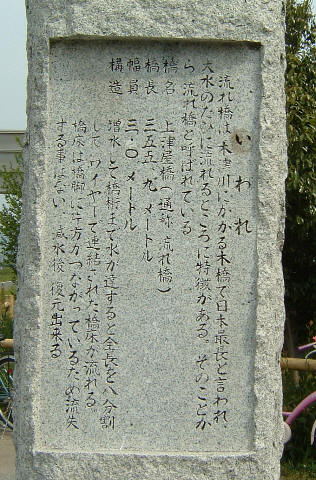 いわれ
流れ橋は、木津川にかかる木橋で日本最長と言われ、
大水のたびに流れるところに特徴がある。そのことか
ら流れ橋と呼ばれている
橋名 上津屋橋(通称 流れ橋)
橋長 三五六・九メートル
幅員 三・〇メートル
構造 増水して橋桁まで水が達すると全長を八分割
して ワイヤーで連結された橋床が流れる
橋床は橋脚に片方がつながっているため流失
する事はない 減水後 復元出来る